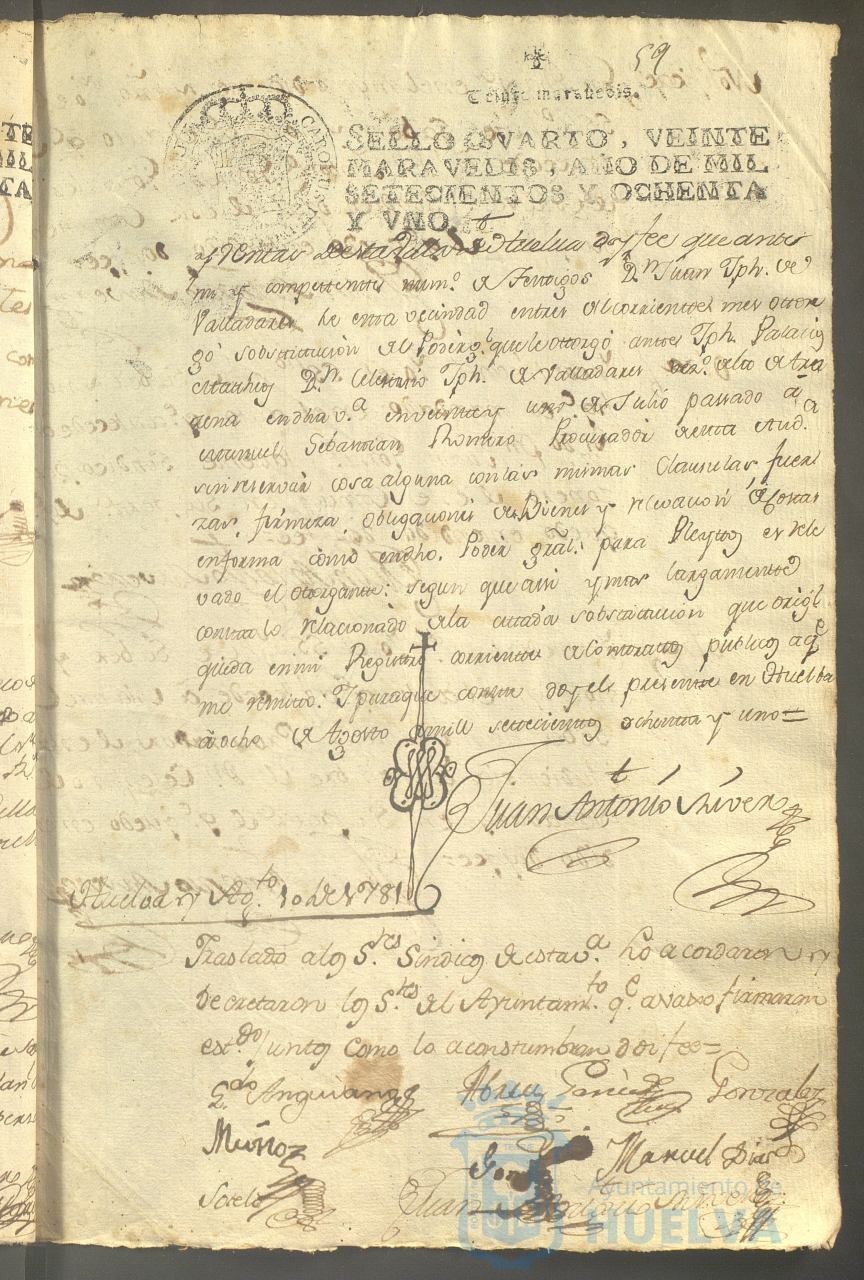 59
Veinte maravedis.
SELLO QVARTO, VEINTE
MARAVEDIS, AÑO DE MIL
SETECIENTOS Y OCHENTA
Y VNO.
CAROLUS
y Rentas de esta de Huelva doy fee que antes
mi y competente num.º de testigos D.n Juan Jph. de
Valladares de esta vecindad en tres del corriente mes otor
gó sobstitución del Poder gl que le otorgó antes Jph. Palacios
D.n Jph. de Valladares
en dha v.a en veinte y uno de Julio passado a
Manuel Sebastian Romero Procurador de esta Aud.a
sin reservar cosa alguna con las mismas Clausulas, fuer
zas, firmeza, obligacion de Bienes y relevacion de Costas
en forma como en dho. Poder gral. para Pleytos es rele
vado el otorgante: segun que assi y mas largamente
consta lo relacionado de la citada sobstitucion que origl
queda en mi Registro corriente de Contratos publicos a q.e
me remito: Y para que conste doy el presente en Huelba
a ocho de Agosto de mill setecientos ochenta y uno=
Juan Antonio Rivera
Huelva y Ag.to 10 de 1781
Traslado a los S.res Sindicos de esta v.a lo acordaron y
Decretaron los S.res del Ayuntam.to q.e avaxo firmaron
est.do juntos como lo acostumbran doi fee=
L.do Anguiano Abreu Garcia Gonzalez
Muñoz
Manuel Diaz
Sotelo Juan
Ayuntamiento de
HUELVA